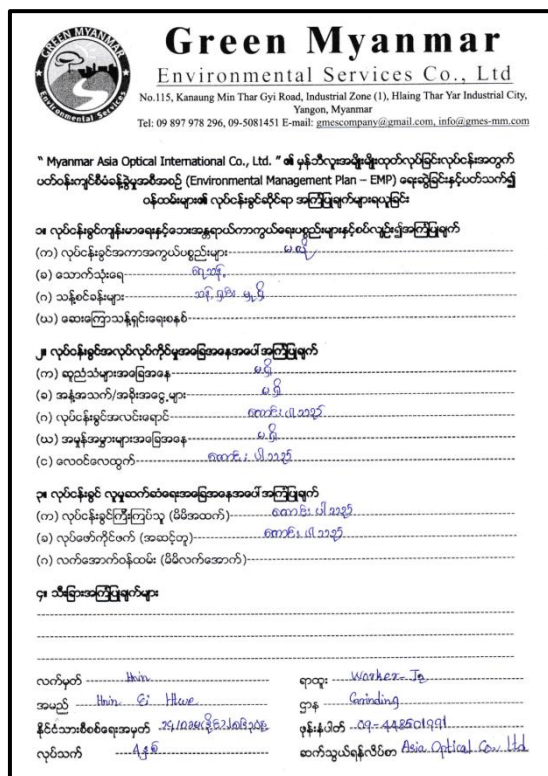 GREEN MYANMAR
Environmental Services
Green Myanmar
Environmental Services Co., Ltd
No.115, Kanaung Min Thar Gyi Road, Industrial Zone (1), Hlaing Thar Yar Industrial City,
Yangon, Myanmar
Tel: 09 897 978 296, 09-5081451 E-mail: gmescompany@gmail.com, info@gmes-mm.com
" Myanmar Asia Optical International Co., Ltd. " ၏ မှန်ဘီလူးအမျိုးမျိုးထုတ်လုပ်ခြင်းလုပ်ငန်းအတွက်
ပတ်ဝန်းကျင်စီမံခန့်ခွဲမှုအစီအစဉ် (Environmental Management Plan – EMP) ရေးဆွဲခြင်းနှင့်ပတ်သက်၍
ဝန်ထမ်းများ၏ လုပ်ငန်းခွင်ဆိုင်ရာ အကြံပြုချက်များရယူခြင်း
၁။ လုပ်ငန်းခွင်ကျန်းမာရေးနှင့်ဘေးအန္တရာယ်ကာကွယ်ရေးပစ္စည်းများနှင့်စပ်လျဉ်း၍အကြံပြုချက်
(က) လုပ်ငန်းခွင်အကာအကွယ်ပစ္စည်းများ မရှိ
(ခ) သောက်သုံးရေ ရေသန့်
(ဂ) သန့်စင်ခန်းများ သန့်ရှင်းမှုရှိ
(ဃ) ဆေးကြောသန့်ရှင်းရေးစနစ်
၂။ လုပ်ငန်းခွင်အလုပ်လုပ်ကိုင်မှုအခြေအနေအပေါ် အကြံပြုချက်
(က) ဆူညံသံများအခြေအနေ မရှိ
(ခ) အနံ့အသက်/အခိုးအငွေ့များ မရှိ
(ဂ) လုပ်ငန်းခွင်အလင်းရောင် ကောင်းပါသည်
(ဃ) အမှုန်အမွှားများအခြေအနေ မရှိ
(င) လေဝင်လေထွက် ကောင်းပါသည်
၃။ လုပ်ငန်းခွင် လူမှုဆက်ဆံရေးအခြေအနေအပေါ် အကြံပြုချက်
(က) လုပ်ငန်းခွင်ကြီးကြပ်သူ (မိမိအထက်) ကောင်းပါသည်
(ခ) လုပ်ဖော်ကိုင်ဖက် (အဆင့်တူ) ကောင်းပါသည်
(ဂ) လက်အောက်ဝန်ထမ်း (မိမိလက်အောက်)
၄။ သီးခြားအကြံပြုချက်များ
လက်မှတ် Hnin ရာထူး Worker-
အမည် Hnin Ei Htwe ဌာန Grinding
နိုင်ငံသားစိစစ်ရေးအမှတ် ဖုန်းနံပါတ် 09-448501991
လုပ်သက် ၄နှစ် ဆက်သွယ်ရန်လိပ်စာ Asia Optical Cov Ltd